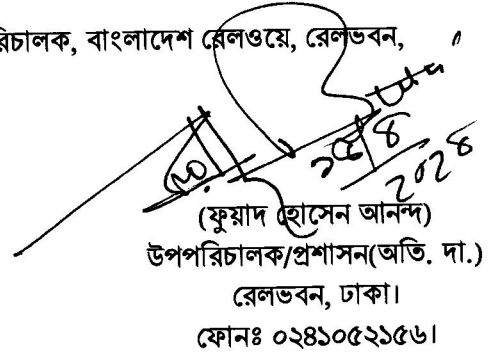 রিচালক, বাংলাদেশ রেলওয়ে, রেলভবন,
২৫/৪
২০২৪
(ফুয়াদ হোসেন আনন্দ)
উপপরিচালক/প্রশাসন(অতি. দা.)
রেলভবন, ঢাকা।
ফোনঃ ০২৪১০৫২১৫৬।